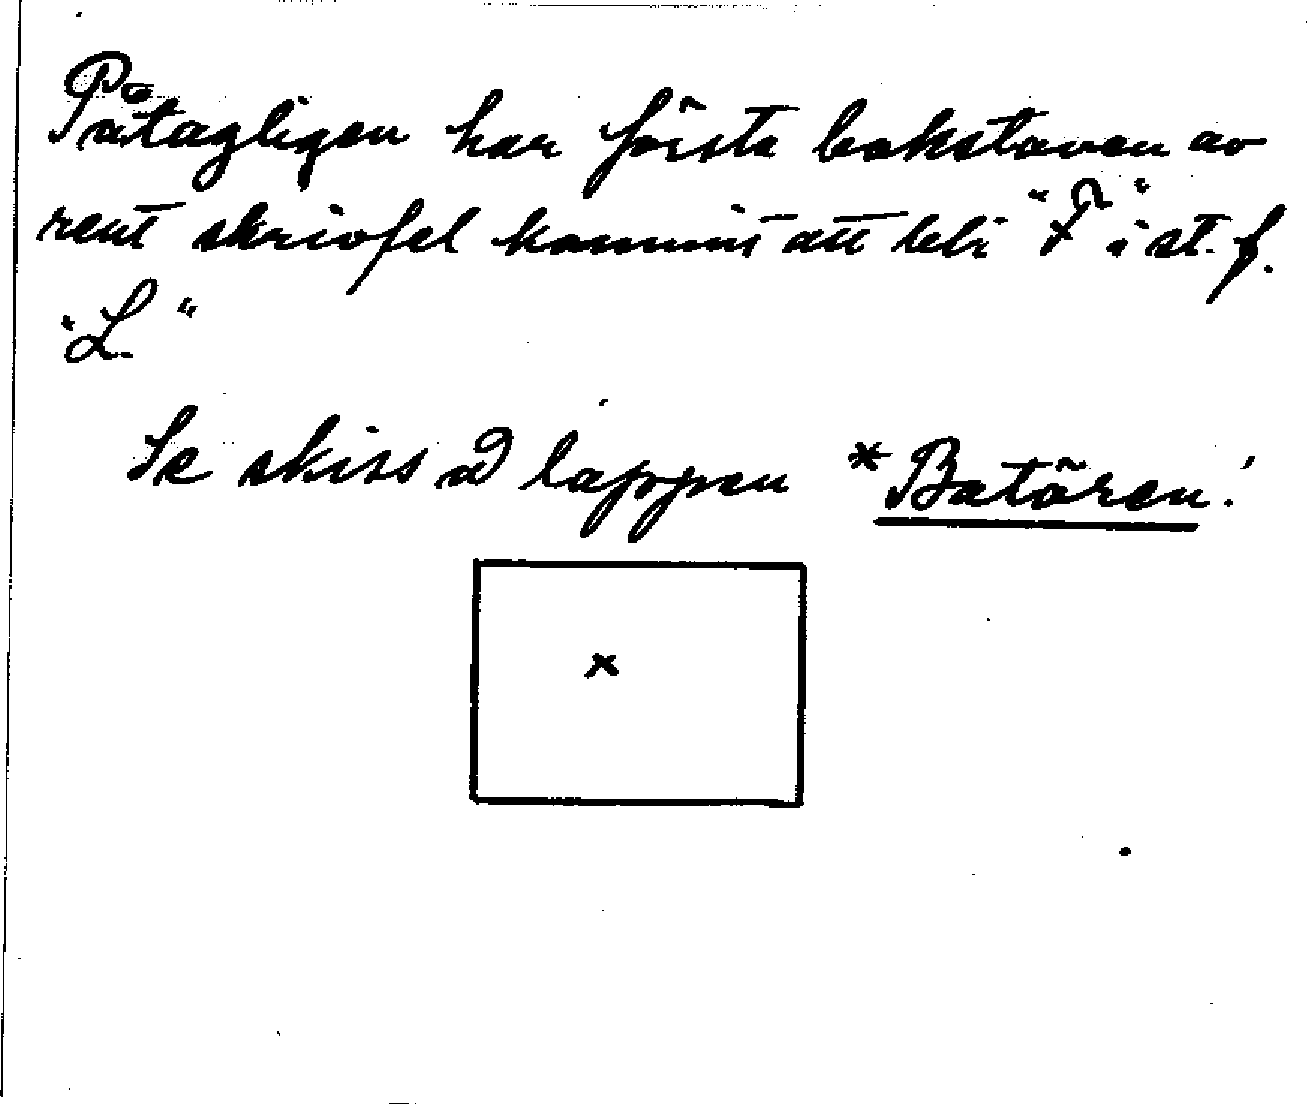 Påtagligen har första bokstaven av
rent skrivfel kommit att bli "F" i st. f.
"L."
Se skiss å lappen *Batören!
x